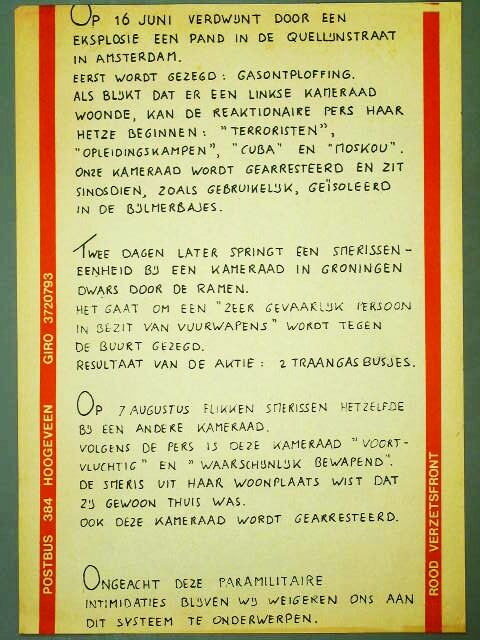 OP 16 JUNI VERDWIJNT DOOR EEN
EKSPLOSIE EEN PAND IN DE QUELLIJNSTRAAT
IN AMSTERDAM.
EERST WORDT GEZEGD: GASONTPLOFFING.
ALS BLIJKT DAT ER EEN LINKSE KAMERAAD
WOONDE, KAN DE REAKTIONAIRE PERS HAAR
HETZE BEGINNEN: "TERRORISTEN",
"OPLEIDINGSKAMPEN", "CUBA" EN "MOSKOU".
ONZE KAMERAAD WORDT GEARRESTEERD EN ZIT
SINDSDIEN, ZOALS GEBRUIKELIJK, GEÏSOLEERD
IN DE BIJLMERBAJES.
TWEE DAGEN LATER SPRINGT EEN SMERISSEN-
EENHEID BIJ EEN KAMERAAD IN GRONINGEN
DWARS DOOR DE RAMEN.
HET GAAT OM EEN "ZEER GEVAARLIJK PERSOON
IN BEZIT VAN VUURWAPENS" WORDT TEGEN
DE BUURT GEZEGD.
RESULTAAT VAN DE AKTIE: 2 TRAANGASBUSJES.
OP 7 AUGUSTUS FLIKKEN SMERISSEN HETZELFDE
BIJ EEN ANDERE KAMERAAD.
VOLGENS DE PERS IS DEZE KAMERAAD "VOORT-
VLUCHTIG" EN "WAARSCHIJNLIJK BEWAPEND".
DE SMERIS UIT HAAR WOONPLAATS WIST DAT
ZIJ GEWOON THUIS WAS.
OOK DEZE KAMERAAD WORDT GEARRESTEERD.
ONGEACHT DEZE PARAMILITAIRE
INTIMIDATIES BLIJVEN WIJ WEIGEREN ONS AAN
DIT SYSTEEM TE ONDERWERPEN.
POSTBUS 384 HOOGEVEEN GIRO 3720793
ROOD VERZETSFRONT